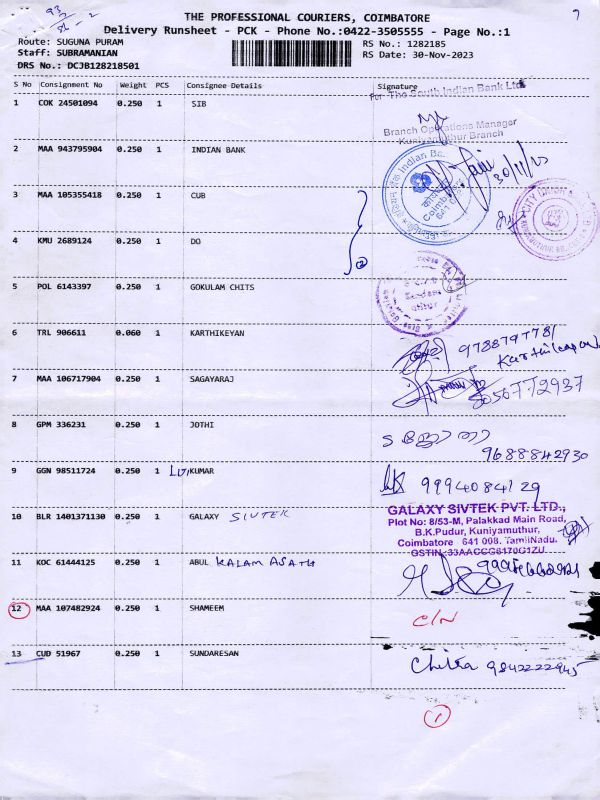 THE PROFESSIONAL COURIERS, COIMBATORE
Delivery Runsheet - PCK - Phone No.:0422-3505555 - Page No.:1
Route: SUGUNA PURAM
Staff: SUBRAMANIAN
DRS No.: DCJB128218501
RS No.: 1282185
RS Date: 30-Nov-2023
S No Consignment No Weight PCS Consignee Details Signature
1 COK 24501094 0.250 1 SIB
For The South Indian Bank Ltd
Branch Operations Manager
Kuniyamuthur Branch
2 MAA 943795904 0.250 1 INDIAN BANK
30/11/23
3 MAA 105355418 0.250 1 CUB
4 KMU 2689124 0.250 1 DO
5 POL 6143397 0.250 1 GOKULAM CHITS
6 TRL 906611 0.060 1 KARTHIKEYAN
7 MAA 106717904 0.250 1 SAGAYARAJ
8 GPM 336231 0.250 1 JOTHI
9688842930
9 GGN 98511724 0.250 1 KUMAR 9994084129
10 BLR 1401371130 0.250 1 GALAXY SIVTEK
GALAXY SIVTEK PVT. LTD.,
Plot No: 8/53-M, Palakkad Main Road,
B.K.Pudur, Kuniyamuthur,
Coimbatore 641 008. TamilNadu.
GSTIN:33AACCG6170G1ZU
11 KOC 61444125 0.250 1 ABUL KALAM ASATH
12 MAA 107482924 0.250 1 SHAMEEM C/N
13 CUD 51967 0.250 1 SUNDARESAN Chitra 9842222945
1